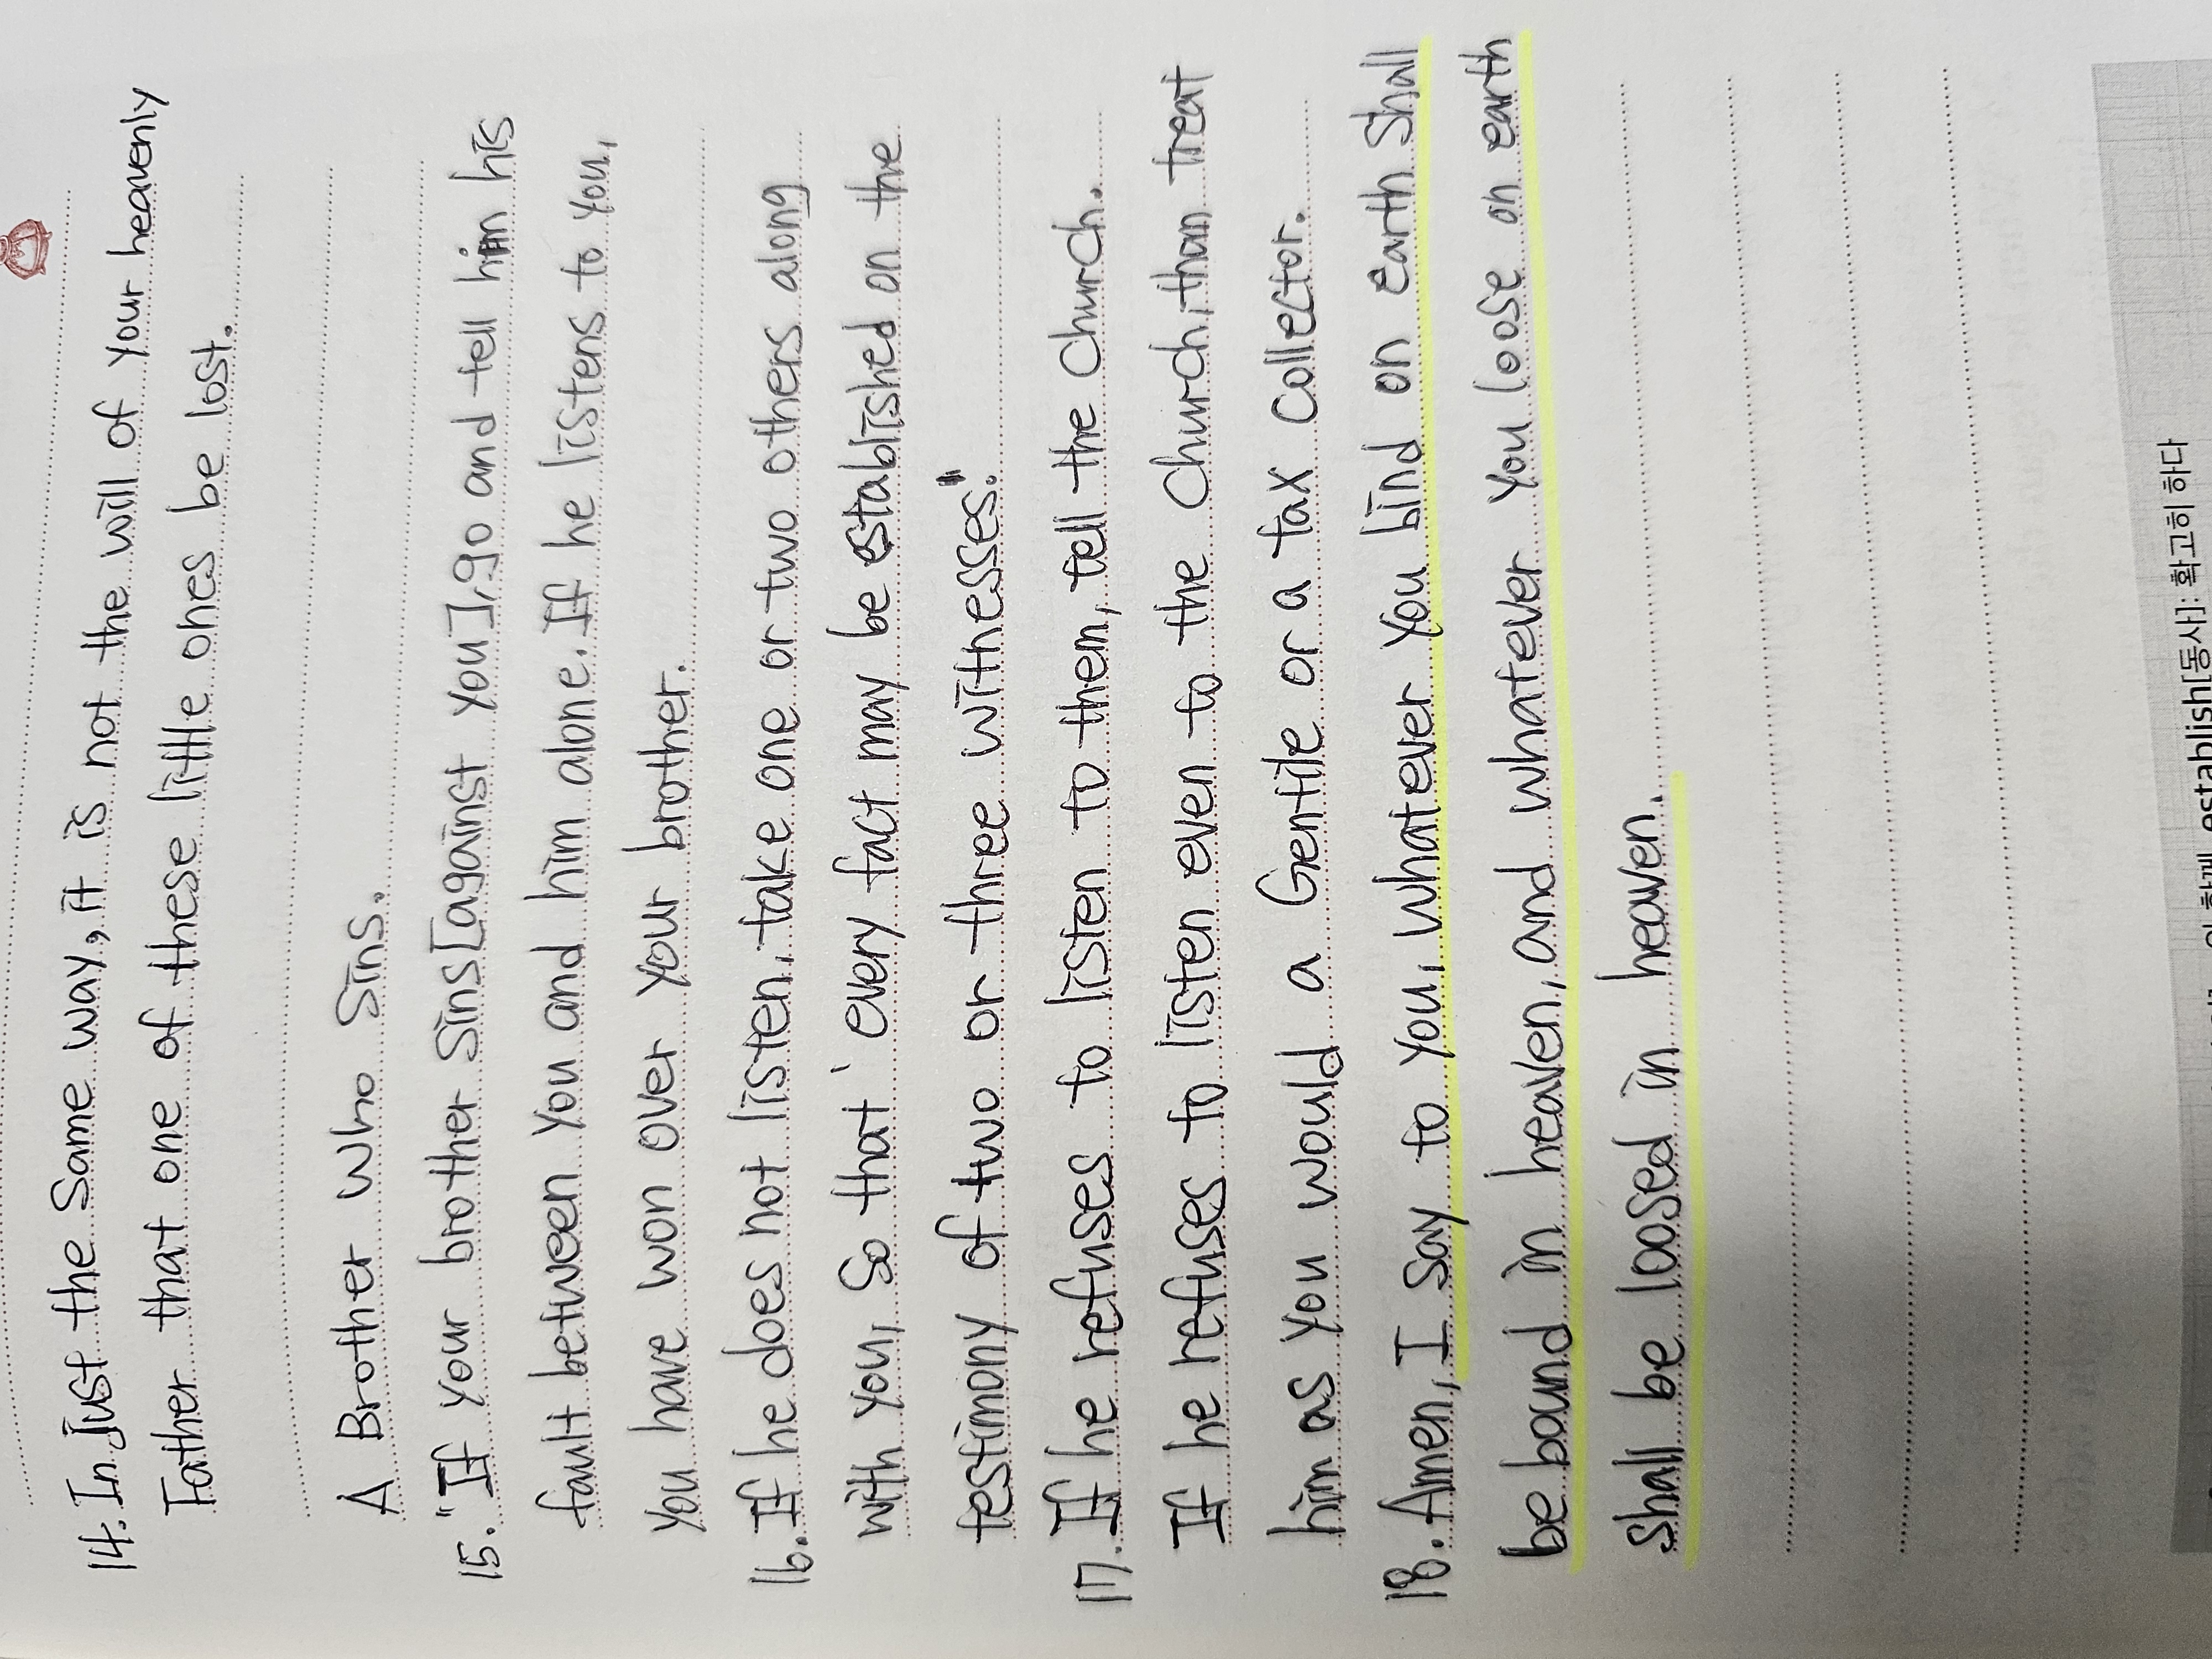 14. In just the Same way, it is not the will of your heavenly
Father that one of these little ones be lost.
A Brother who Sins.
15. "If your brother Sins [against you], go and tell him his
fault between you and him alone. If he listens to you,
you have won over your brother.
16. If he does not listen, take one or two others along
with you, So that 'every fact may be established on the
testimony of two or three witnesses."
17. If he refuses to listen to them, tell the Church.
If he refuses to listen even to the Church, than treat
him as you would a Gentile or a tax Collector.
18. Amen, I say to you, whatever you bind on earth Shall
be bound in heaven, and whatever you loose on earth
shall be loosed in heaven.
establish[동사]: 확고히 하다